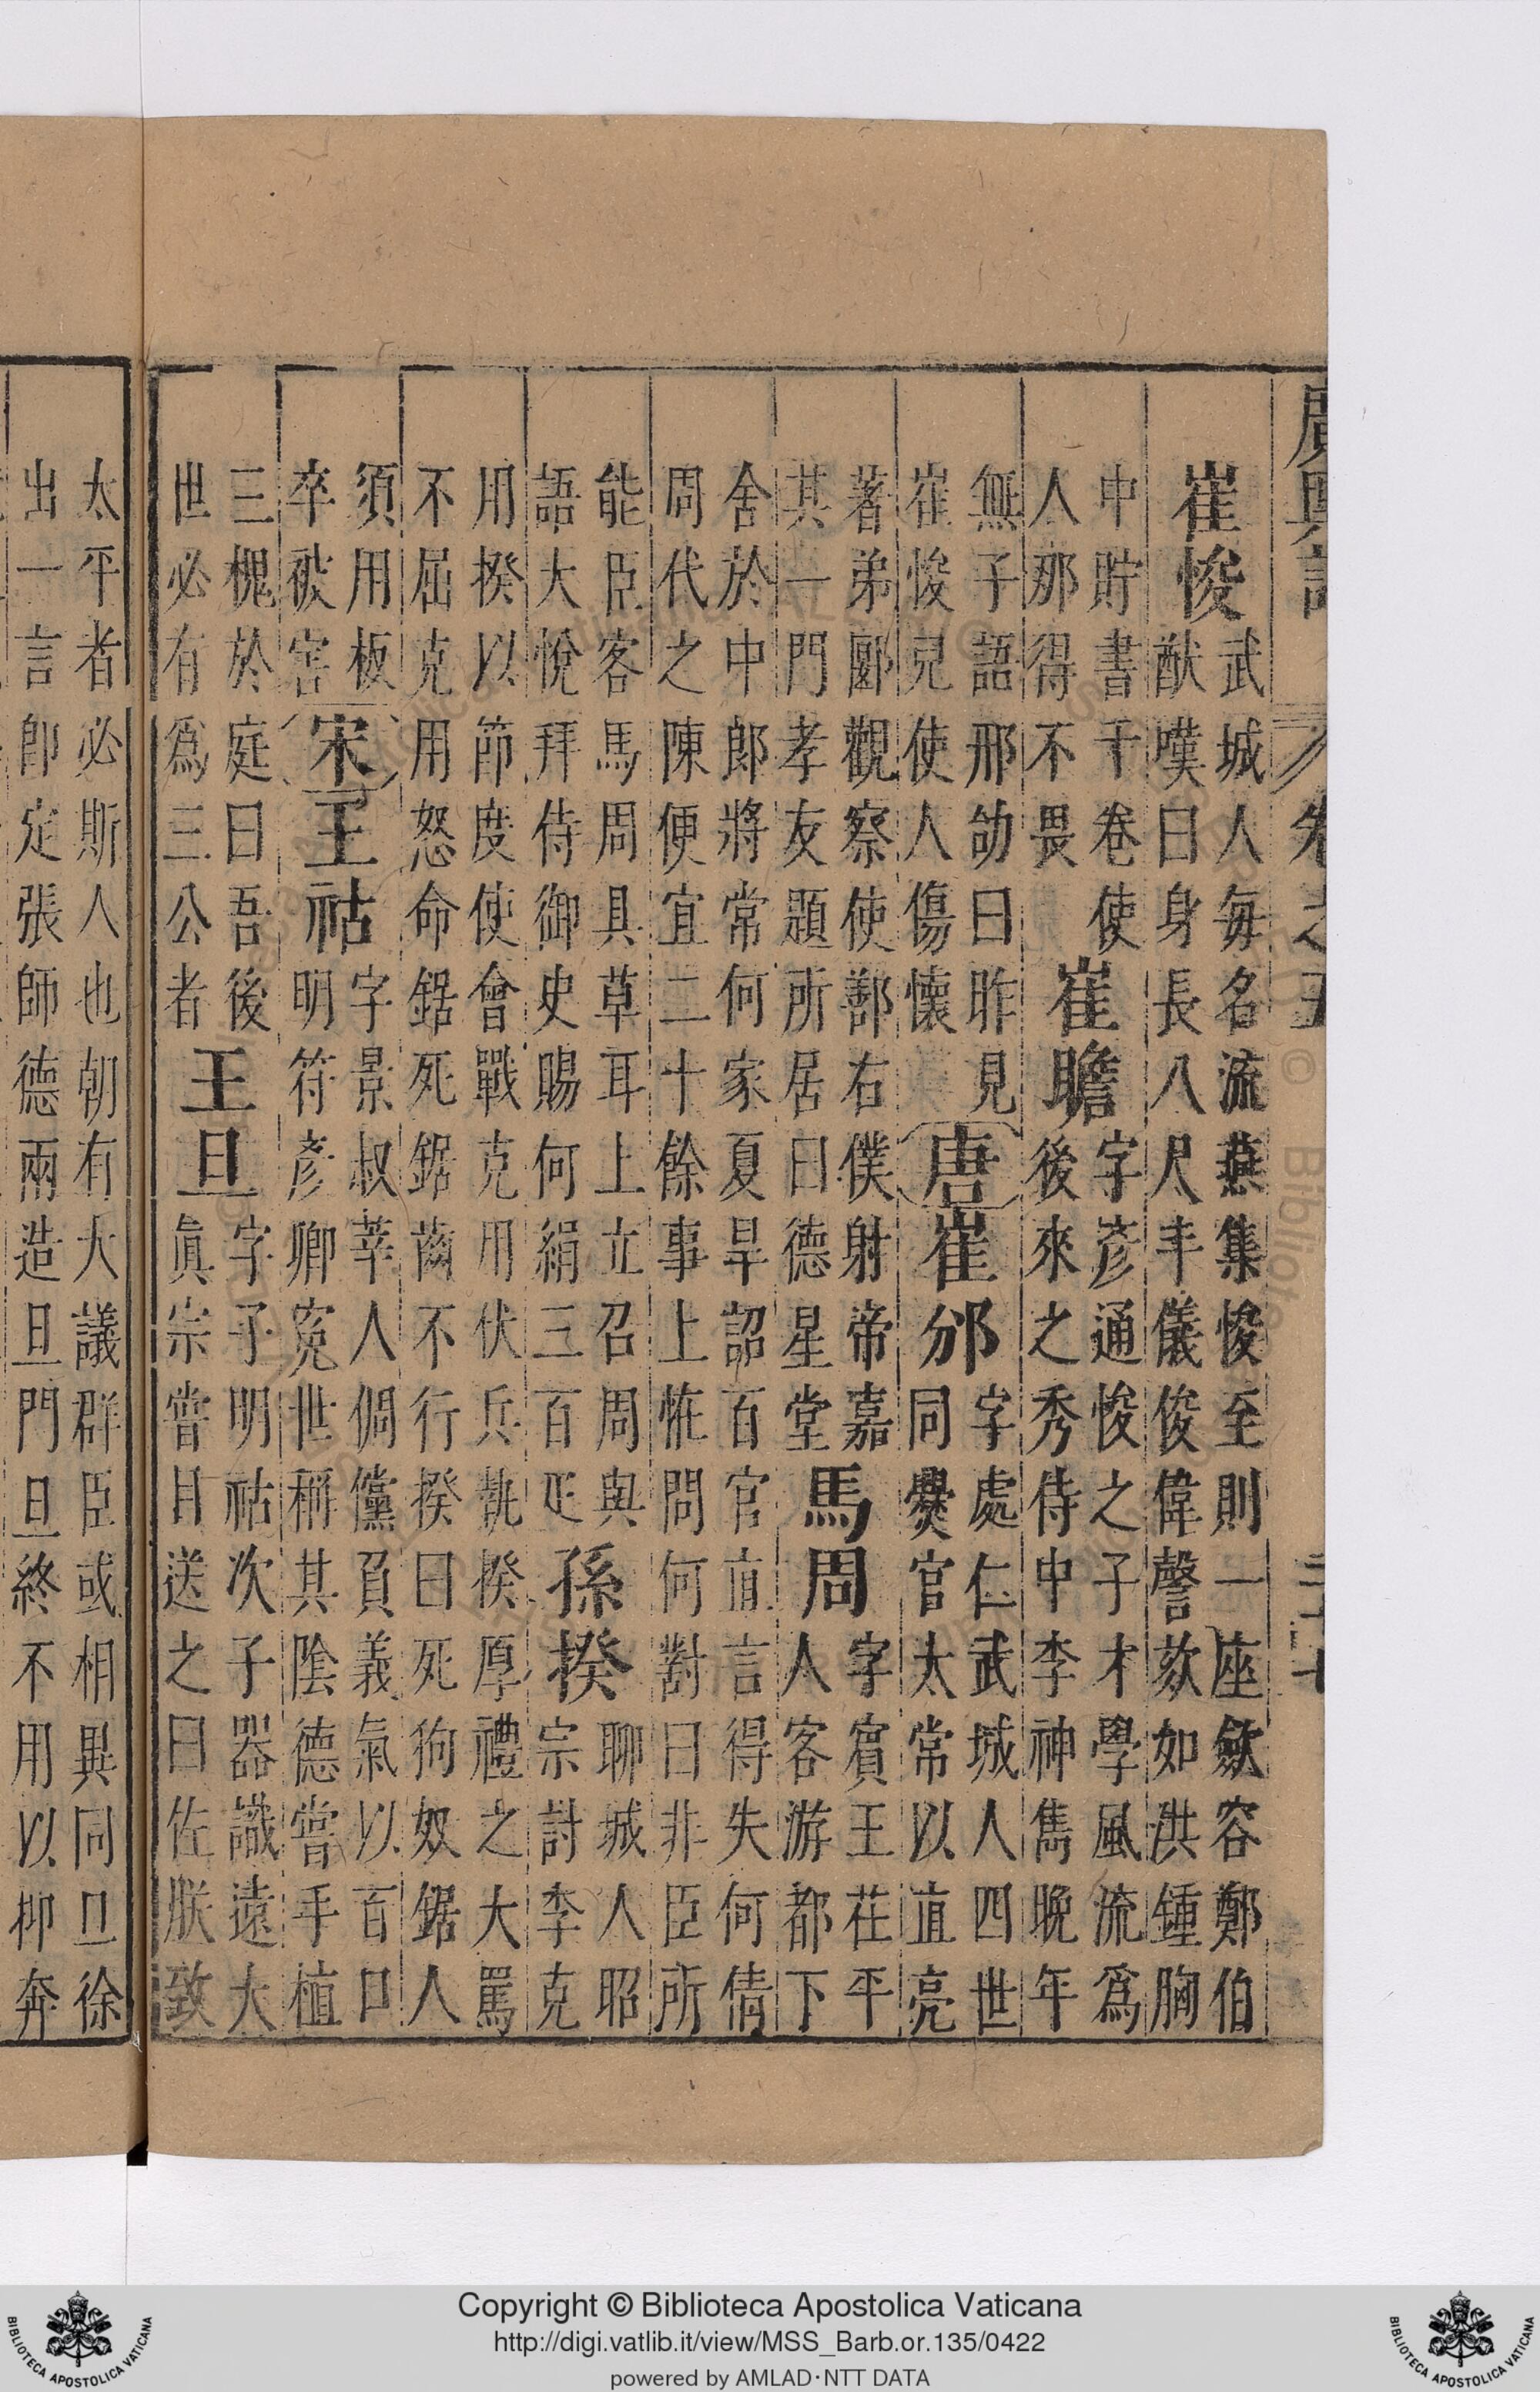 廣輿記 卷之五 三十七
崔悛 武城人每名流燕集悛至則一座歛容鄭伯
猷嘆曰身長八尺丰儀俊偉謦欬如洪鍾胸
中貯書千卷使
人那得不畏
崔瞻 字彥通悛之子才學風流爲
後來之秀侍中李神雋晚年
無子語邢劭曰昨見
崔悛兒使人傷懷
唐 崔邠 字處仁武城人四世
同爨官太常以直亮
著弟郾觀察使鄯右僕射帝嘉
其一門孝友題所居曰德星堂
馬周 字賓王茌平
人客游都下
舍於中郎將常何家夏旱詔百官直言得失何倩
周代之陳便宜二十餘事上恠問何對曰非臣所
能臣客馬周具草耳上立召周與
語大悅拜侍御史賜何絹三百疋
孫揆 聊城人昭
宗討李克
用揆以節度使會戰克用伏兵執揆厚禮之大罵
不屈克用怒命鋸死鋸齒不行揆曰死狗奴鋸人
須用板
卒被害
宋 王祜 字景叔莘人倜儻負義氣以百口
明符彥卿寃世稱其陰德嘗手植
三槐於庭曰吾後
世必有爲三公者
王旦 字子明祜次子器識遠大
眞宗嘗目送之曰佐朕致
太平者必斯人也朝有大議群臣或相異同旦徐
出一言卽定張師德兩造旦門旦終不用以抑奔
Copyright © Biblioteca Apostolica Vaticana
http://digi.vatlib.it/view/MSS_Barb.or.135/0422
powered by AMLAD·NTT DATA
BIBLIOTECA APOSTOLICA VATICANA
BIBLIOTECA APOSTOLICA VATICANA